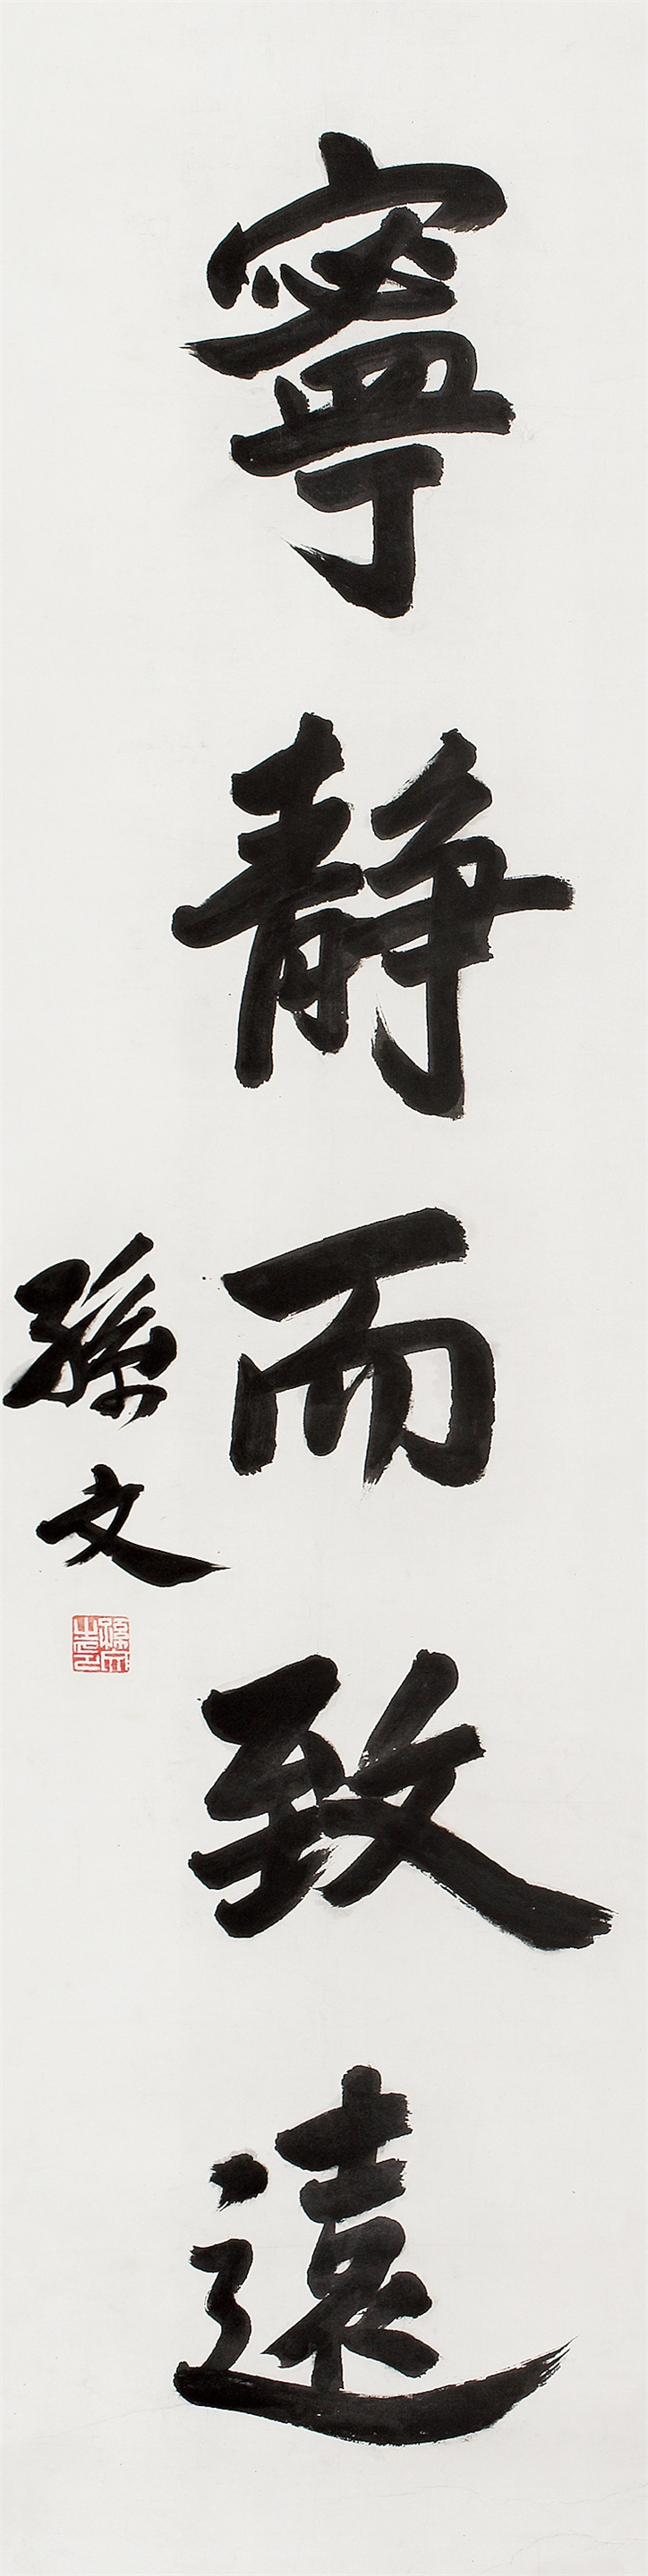 寧靜而致遠
孫文
孫文之印